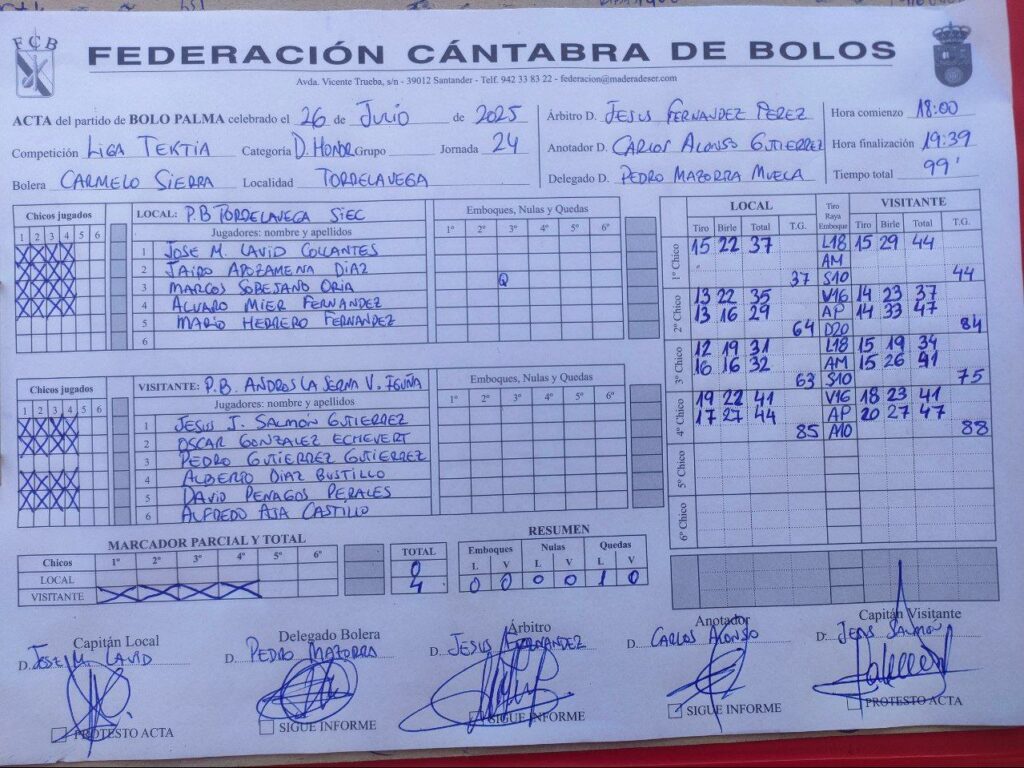 FCB
FEDERACIÓN CÁNTABRA DE BOLOS
Avda. Vicente Trueba, s/n - 39012 Santander - Telf. 942 33 83 22 - federacion@maderadeser.com
ACTA del partido de BOLO PALMA celebrado el 26 de Julio de 2025
Competición LIGA TEKTIA Categoría D. HONOR Grupo Jornada 24
Bolera CARMELO SIERRA Localidad TORRELAVEGA
Árbitro D. JESUS FERNANDEZ PEREZ
Anotador D. CARLOS ALONSO GUTIERREZ
Delegado D. PEDRO MAZORRA MUELA
Hora comienzo 18:00
Hora finalización 19:39
Tiempo total 99'
Chicos jugados
1 2 3 4 5 6
LOCAL: P.B TORRELAVEGA SIEC
Jugadores: nombre y apellidos
Emboques, Nulas y Quedas
1º 2º 3º 4º 5º 6º
1 JOSE M. LAVID COLLANTES
2 JAIRO AROZAMENA DIAZ
3 MARCOS SOBEJANO ORIA Q
4 ALVARO MIER FERNANDEZ
5 MARIO HERRERO FERNANDEZ
6
Chicos jugados
1 2 3 4 5 6
VISITANTE: P.B. ANDROS LA SERNA V. IGUÑA
Jugadores: nombre y apellidos
Emboques, Nulas y Quedas
1º 2º 3º 4º 5º 6º
1 JESUS J. SALMÓN GUTIERREZ
2 OSCAR GONZALEZ ECHEVERT
3 PEDRO GUTIERREZ GUTIERREZ
4 ALBERTO DIAZ BUSTILLO
5 DAVID PENAGOS PERALES
6 ALFREDO AJA CASTILLO
LOCAL Tiro Raya Emboque VISITANTE
Tiro Birle Total T.G. Tiro Birle Total T.G.
1º Chico
15 22 37 L18 15 29 44
AM
37 S10 44
2º Chico
13 22 35 V16 14 23 37
13 16 29 AP 14 33 47
64 D20 84
3º Chico
12 19 31 L18 15 19 34
16 16 32 AM 15 26 41
63 S10 75
4º Chico
19 22 41 V16 18 23 41
17 27 44 AP 20 27 47
85 A10 88
5º Chico
6º Chico
MARCADOR PARCIAL Y TOTAL
Chicos 1º 2º 3º 4º 5º 6º TOTAL
LOCAL 0
VISITANTE 4
RESUMEN
Emboques Nulas Quedas
L V L V L V
0 0 0 0 1 0
Capitán Local
D. JOSE M. LAVID
PROTESTO ACTA
Delegado Bolera
D. PEDRO MAZORRA
SIGUE INFORME
Árbitro
D. JESUS FERNANDEZ
SIGUE INFORME
Anotador
D. CARLOS ALONSO
SIGUE INFORME
Capitán Visitante
D. JESUS SALMÓN
PROTESTO ACTA